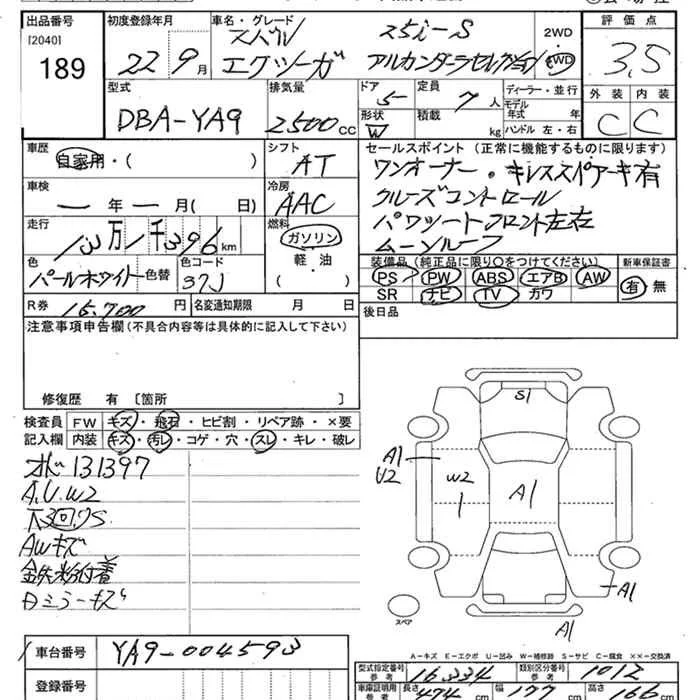 出品番号 初度登録年月 車名・グレード 2WD 評価点
[2040] スバル 25i-S
189 22 9月 エクシーガ アルカンターラセレクション 4WD 3.5
型式 排気量 ドア 定員 ディーラー・並行 外装 内装
DBA-YA9 2500cc 5 7人 モデル年式 年
形状 W 積載 kg ハンドル 左・右 C C
車歴 シフト セールスポイント(正常に機能するものに限ります)
自家用・( ) AT ワンオーナー・キレススペアーキ有
車検 冷房 クルーズコントロール
ー年ー月( 日) AAC パワーシートフロント左右
走行 燃料 ムーンルーフ
13万1千396km ガソリン
軽・油
( )
色 色替 色コード
パールホワイト 37J
装備品(純正品に限り〇をつけてください) 新車保証書
PS PW ABS エアB AW 有 無
SR ナビ TV カワ
R券 15,700円 名変通知期限 月 日 後日品
注意事項申告欄(不具合内容等は具体的に記入して下さい)
修復歴 有 [箇所
検査員 FW キズ・飛石・ヒビ割・リペア跡・×要
記入欄 内装 キズ・汚レ・コゲ・穴・スレ・キレ・破レ
オド131397
A.U.W2
下回りS
AWキズ
鉄粉付着
Dミラーキズ
S1
A1
U2
W2
A1
A1
A1
スペア
A-キズ E-エクボ U-凹み W-補修跡 S-サビ C-腐食 ××-交換済
車台番号 YA9-004593
登録番号
型式指定番号 参考 16334 類別区分番号 参考 1012
車庫証明用 参考 長さ 474cm 幅 177cm 高さ 166cm